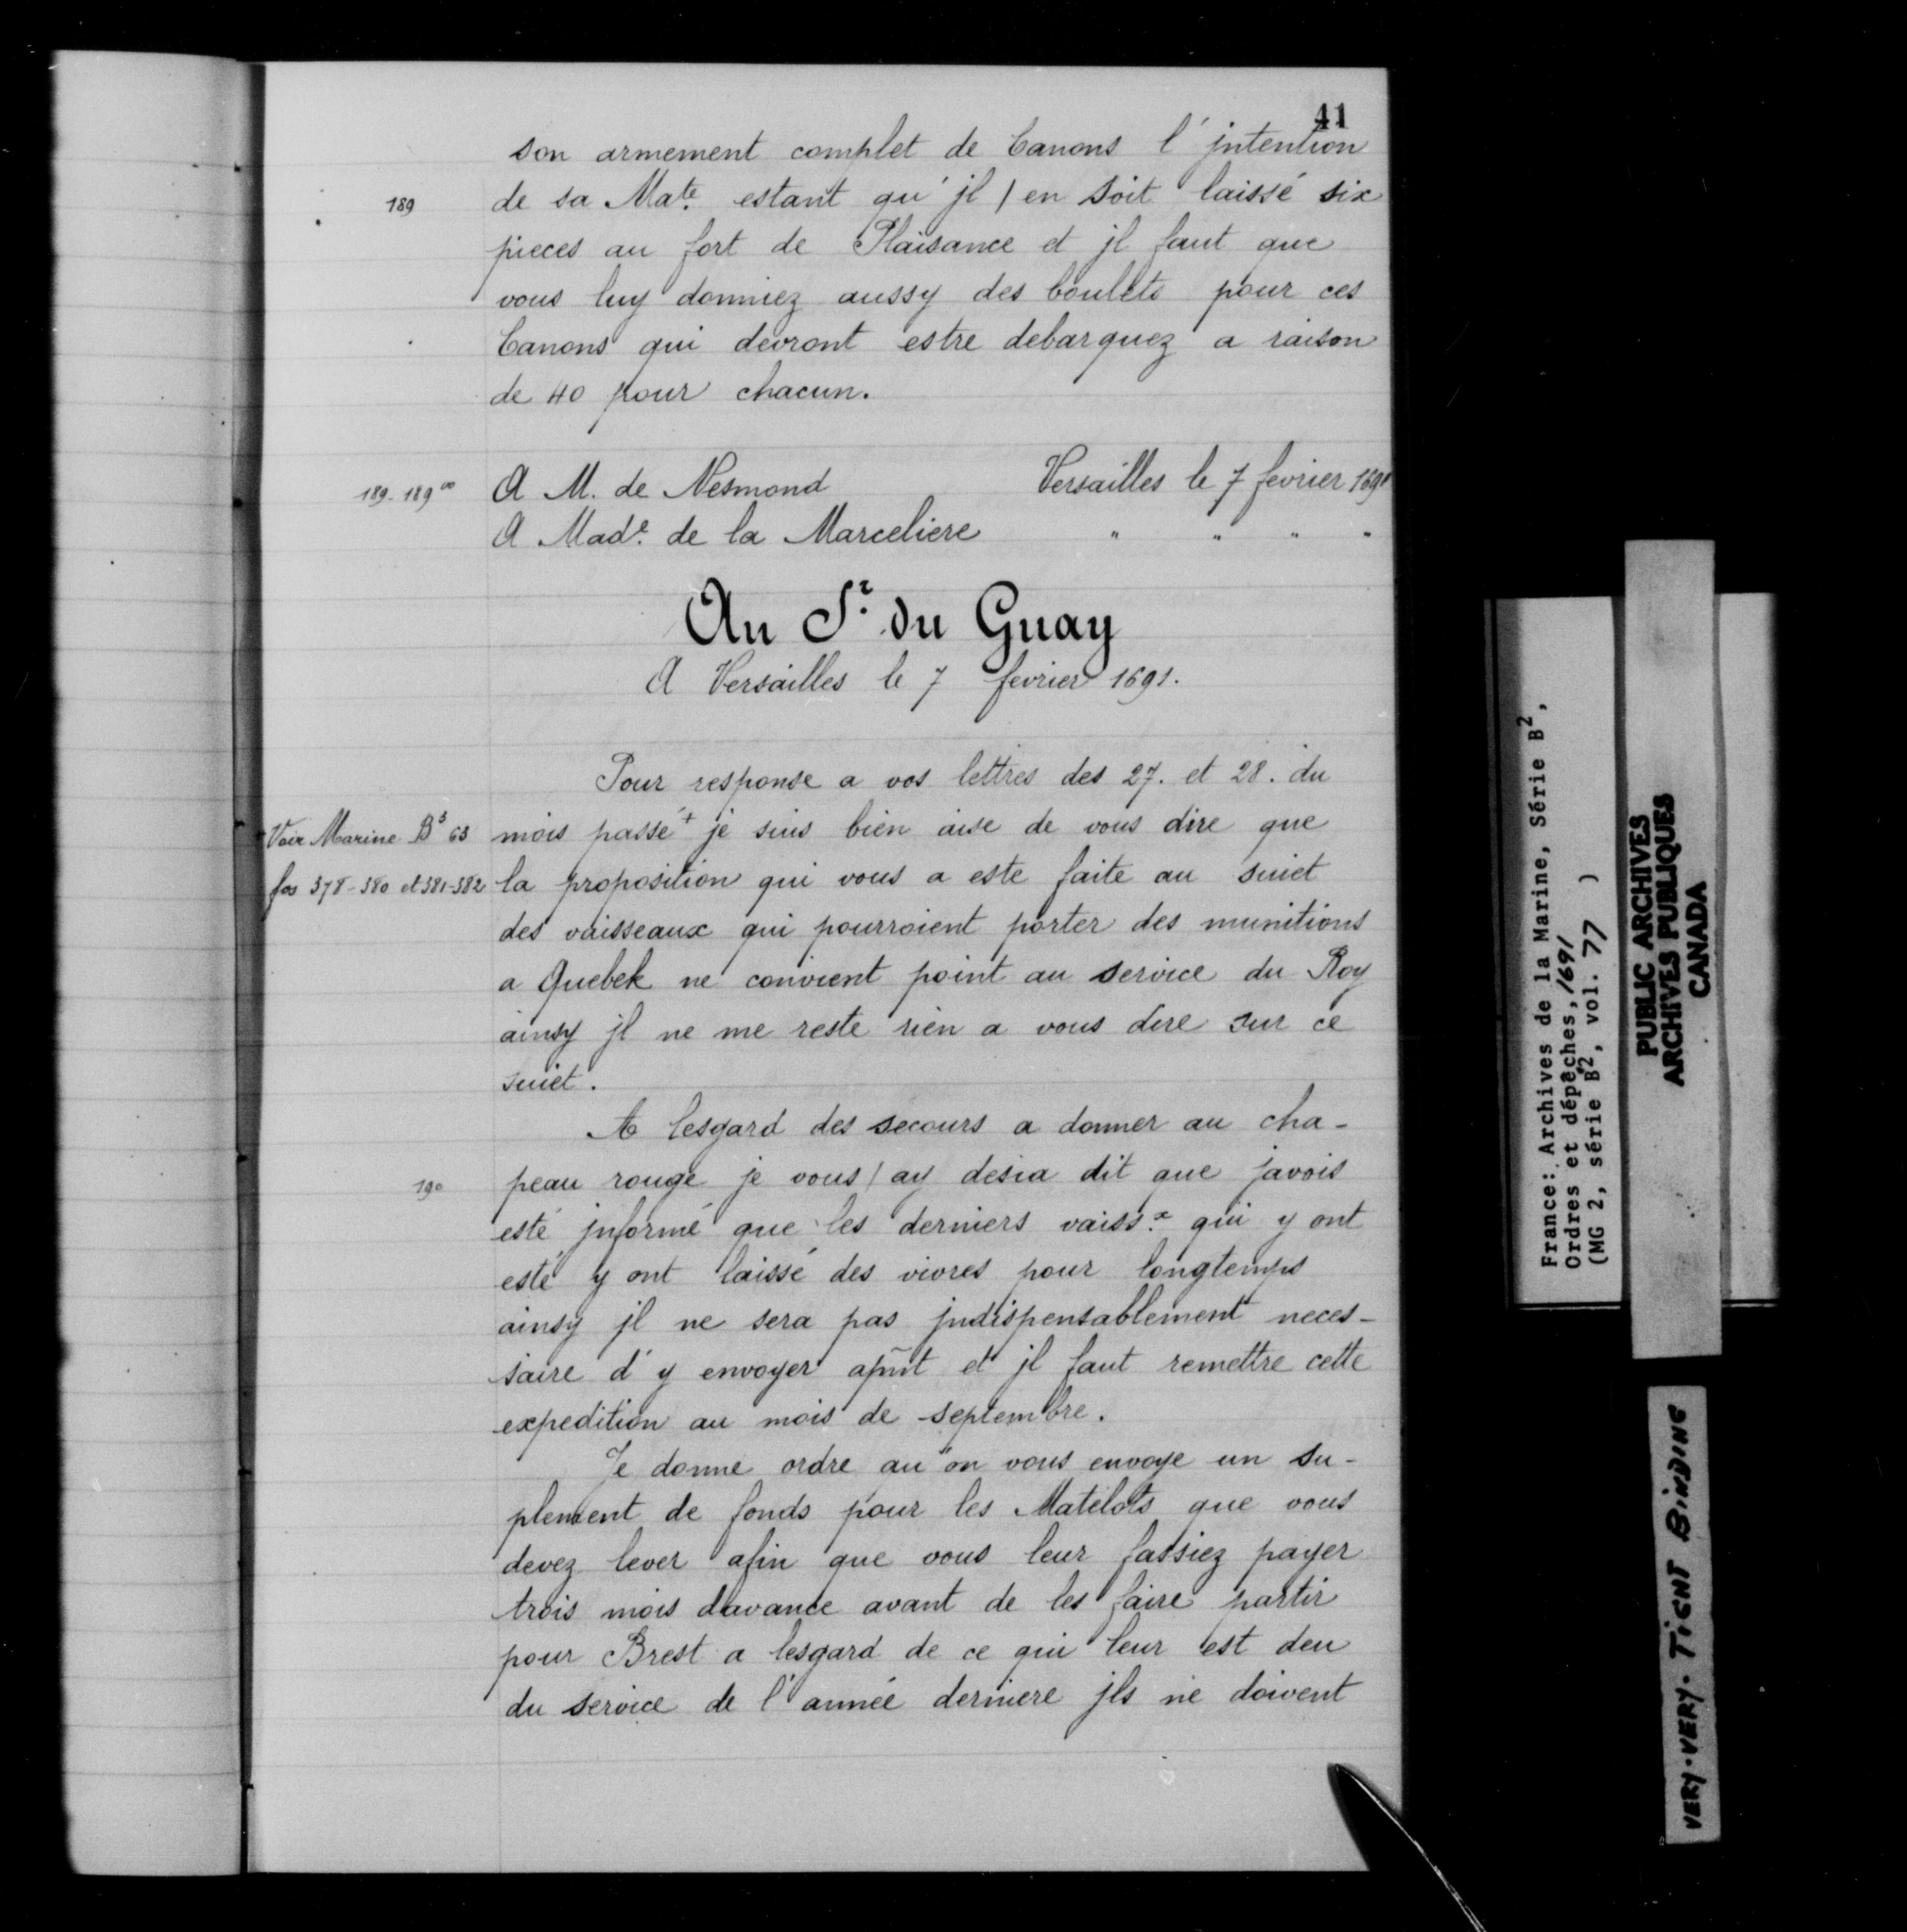 41
son armement complet de Canons l'jntention
189
de sa Mate. estant qu'jl / en soit laissé six
pieces au fort de Plaisance et jl faut que
vous luy donniez aussy des boulets pour ces
Canons qui devront estre debarquez a raison
de 40 pour chacun.
189-189vo
A M. de Nesmond Versailles le 7 fevrier 1691
A Made. de la Marceliere " " " "
Au Sr. du Guay
A Versailles le 7 fevrier 1691.
Pour response a vos lettres des 27. et 28. du
+ Voir Marine B3 63
mois passé + je suis bien aise de vous dire que
fos 378-380 et 381-382
la proposition qui vous a este faite au suiet
des vaisseaux qui pourroient porter des munitions
a Quebek ne convient point au service du Roy
ainsy jl ne me reste rien a vous dire sur ce
suiet.
A lesgard des secours a donner au cha-
190
peau rouge je vous / ay desia dit que javois
esté jnformé que les derniers vaissx. qui y ont
esté y ont laissé des vivres pour longtemps
ainsy jl ne sera pas jndispensablement neces-
saire d'y envoyer apñt et jl faut remettre cette
expedition au mois de septembre.
Je donne ordre qu'on vous envoye un su-
plement de fonds pour les Matelots que vous
devez lever afin que vous leur fassiez payer
trois mois davance avant de les faire partir
pour Brest a lesgard de ce qui leur est deu
du service de l'année derniere jls ne doivent
France: Archives de la Marine, Série B2,
Ordres et dépêches, 1691
(MG 2, série B2, vol. 77 )
PUBLIC ARCHIVES
ARCHIVES PUBLIQUES
CANADA
VERY-VERY-TIGHT BINDING